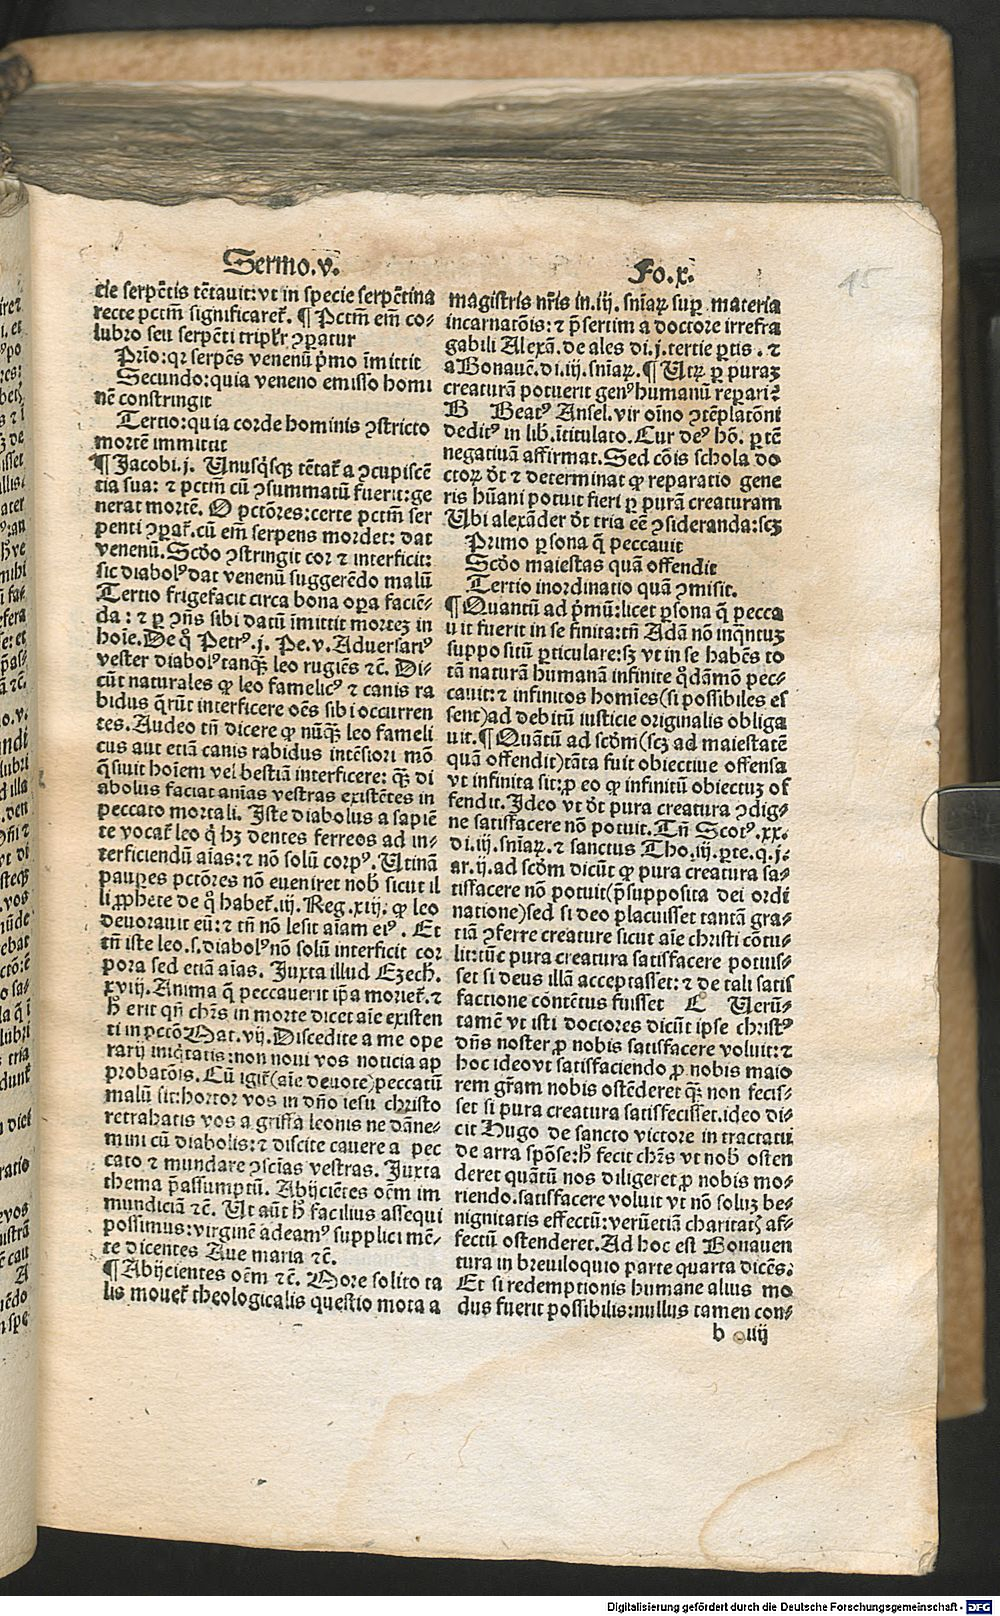 Sermo.v.
Fo.x.
15
cie serpētis tētauit: vt in specie serpētina
recte pctm̄ significaret᷑. ¶ Pctm̄ em̄ co-
lubro seu serpēti triplr̄ ꝯparatur
Prīo: qꝛ serpēs venenū pͥmo īmittit
Secundo: quia veneno emisso homi
nē constringit
Tertio: quia corde hominis ꝯstricto
mortē immittit
¶ Jacobi.j. Unusqͥsqꝫ tētat᷑ a ꝯcupiscē
tia sua: ⁊ pctm̄ cū ꝯsummatū fuerit: ge
nerat mortē. O pctōres: certe pctm̄ ser
penti ꝯꝑat᷑. cū em̄ serpens mordet: dat
venenū. Scd̄o ꝯstringit cor ⁊ interficit:
sic diabolꝰ dat venenū suggerēdo malū
Tertio frigefacit circa bona oꝑa faciē-
da: ⁊ ꝑ ꝯn̄s sibi datū īmittit mortez in
hoīe. De qͦ Petrꝰ.j. Pe.v. Aduersariꝰ
vester diabolꝰ tanqꝫ̄ leo rugiēs ⁊c̄. Di-
cūt naturales ꝙ leo famelicꝰ ⁊ canis ra
bidus qͣrūt interficere oēs sibi occurren
tes. Audeo tn̄ dicere ꝙ nūqꝫ̄ leo fameli
cus aut etiā canis rabidus intēsiori mō
q̄siuit hoīem vel bestiā interficere: qꝫ̄ di
abolus faciat aīas vestras existētes in
peccato mortali. Iste diabolus a sapiē
te vocat᷑ leo qͥ hꝫ dentes ferreos ad in-
terficiendū aīas: ⁊ nō solū corpꝰ. Utinā
pauꝑes pctōres nō eueniret nob̄ sicut il
li ꝓphete de qͦ habet᷑.iij. Reg.xiij. ꝙ leo
deuorauit eū: ⁊ tn̄ nō lesit aīam eiꝰ. Et
tn̄ iste leo.s. diabolꝰ nō solū interficit cor
pora sed etiā aīas. Juxta illud Ezech̄.
xviij. Anima q̄ peccauerit ip̄a moriet᷑. ⁊
h̄ erit qn̄ chr̄s in morte dicet aīe existen
ti in pctō Mat.vij. Discedite a me ope
rarij iniqͥtatis: non noui vos noticia ap
probatōis. Cū igit᷑ (aīe deuote) peccatū
malū sit: hortor vos in dn̄o iesu christo
retrahatis vos a griffa leonis ne dāne-
mini cū diabolis: ⁊ discite cauere a pec
cato ⁊ mundare ꝯscias vestras. Juxta
thema p̄assumptū. Abijciētes oēm im
mundiciā ⁊c̄. Ut aūt h̄ facilius assequi
possimus: virginē adeamꝰ supplici mē-
te dicentes Aue maria ⁊c̄.
¶ Abijcientes oēm ⁊c̄. More solito ta
lis mouet᷑ theologicalis questio mota a
magistris nr̄is in.iij. sn̄iaꝝ suꝑ materia
incarnatōis: ⁊ p̄sertim a doctore irrefra
gabili Alexā. de ales di.j. tertie ꝑtis. ⁊
a Bonauē. di.iij. sn̄iaꝝ. ¶ Utꝝ ꝑ puraꝫ
creaturā potuerit genꝰ humanū repari?
B Beatꝰ Ansel. vir oīno ꝯtēplatōni
deditꝰ in lib. ītitulato. Cur deꝰ hō. ꝑtē
negatiuā affirmat. Sed cōis schola do
ctoꝝ dt̄ ⁊ determinat ꝙ reparatio gene
ris hūani potuit fieri ꝑ purā creaturam
Ubi alexāder dt̄ tria eē ꝯsideranda: scꝫ
Primo ꝑsona q̄ peccauit
Scd̄o maiestas quā offendit
Tertio inordinatio quā ꝯmisit.
¶ Quantū ad pͥmū: licet ꝑsona q̄ pecca
uit fuerit in se finita: tn̄ Adā nō inqͣntuꝫ
suppositū ꝑticulare: sꝫ vt in se habēs to
tā naturā humanā infinite qͦdāmō pec-
cauit: ⁊ infinitos homīes (si possibiles es
sent) ad debitū iusticie originalis obliga
uit. ¶ Quātū ad scd̄m (scꝫ ad maiestatē
quā offendit) tāta fuit obiectiue offensa
vt infinita sit: ꝓ eo ꝙ infinitū obiectuꝫ of
fendit. Ideo vt dt̄ pura creatura ꝯdig-
ne satisfacere nō potuit. Tn̄ Scotꝰ.xx.
di.iij. sn̄iaꝝ. ⁊ sanctus Tho.iij. ꝑte.q.j.
ar.ij. ad scd̄m dicūt ꝙ pura creatura sa-
tisfacere nō potuit (p̄supposita dei ordi
natione) sed si deo placuisset tantā gra-
tiā ꝯferre creature sicut aīe christi cōtu-
lit: tūc pura creatura satisfacere potuis-
set si deus illā acceptasset: ⁊ de tali satis
factione contētus fuisset C Uerū-
tamē vt isti doctores dicūt ipse christꝰ
dn̄s noster ꝓ nobis satisfacere voluit: ⁊
hoc ideo vt satisfaciendo ꝓ nobis maio
rem gr̄am nobis ostēderet qꝫ̄ non fecis-
set si pura creatura satisfecisset. ideo di-
cit Hugo de sancto victore in tractatu
de arra spōse: h̄ fecit chr̄s vt nob̄ osten
deret quātū nos diligeret ꝓ nobis mo-
riendo. satisfacere voluit vt nō soluꝫ be-
nignitatis effectū: verūetiā charitatꝭ af-
fectū ostenderet. Ad hoc est Bonauen
tura in breuiloquio parte quarta dicēs:
Et si redemptionis humane alius mo
dus fuerit possibilis: nullus tamen con-
b iiij
Digitalisierung gefördert durch die Deutsche Forschungsgemeinschaft - DFG